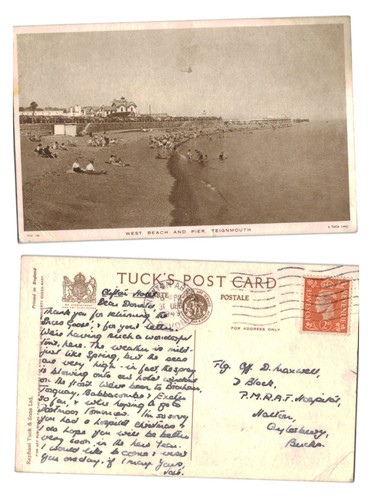 WEST BEACH AND PIER, TEIGNMOUTH
A TUCK CARD
TUCK'S POST CARD
CARTE POSTALE
FOR ADDRESS ONLY
Printed in England
Raphael Tuck & Sons Ltd.
POSTAGE
REVENUE
Clifton Hotel
Dear Donald,
Thank you for returning the
& for your letter.
We're having such a wonderful
time, here. The weather is mild -
just like Spring, but the seas
are very high - in fact the spray
is blowing onto our hotel windows
on the front. We've been to Brixham,
Torquay, Babbacombe & Exeter
so far, & we're hoping to go to
Dartmoor Tomorrow. I'm so sorry
you had a hospital Christmas &
I do hope you will be better
very soon in the New Year.
I should like to come & meet
you one day, if I may. Yours,
Flg. Off. D. Maxwell,
7 Block,
P.M.R.A.F. Hospital,
Halton,
Aylesbury,
Bucks.